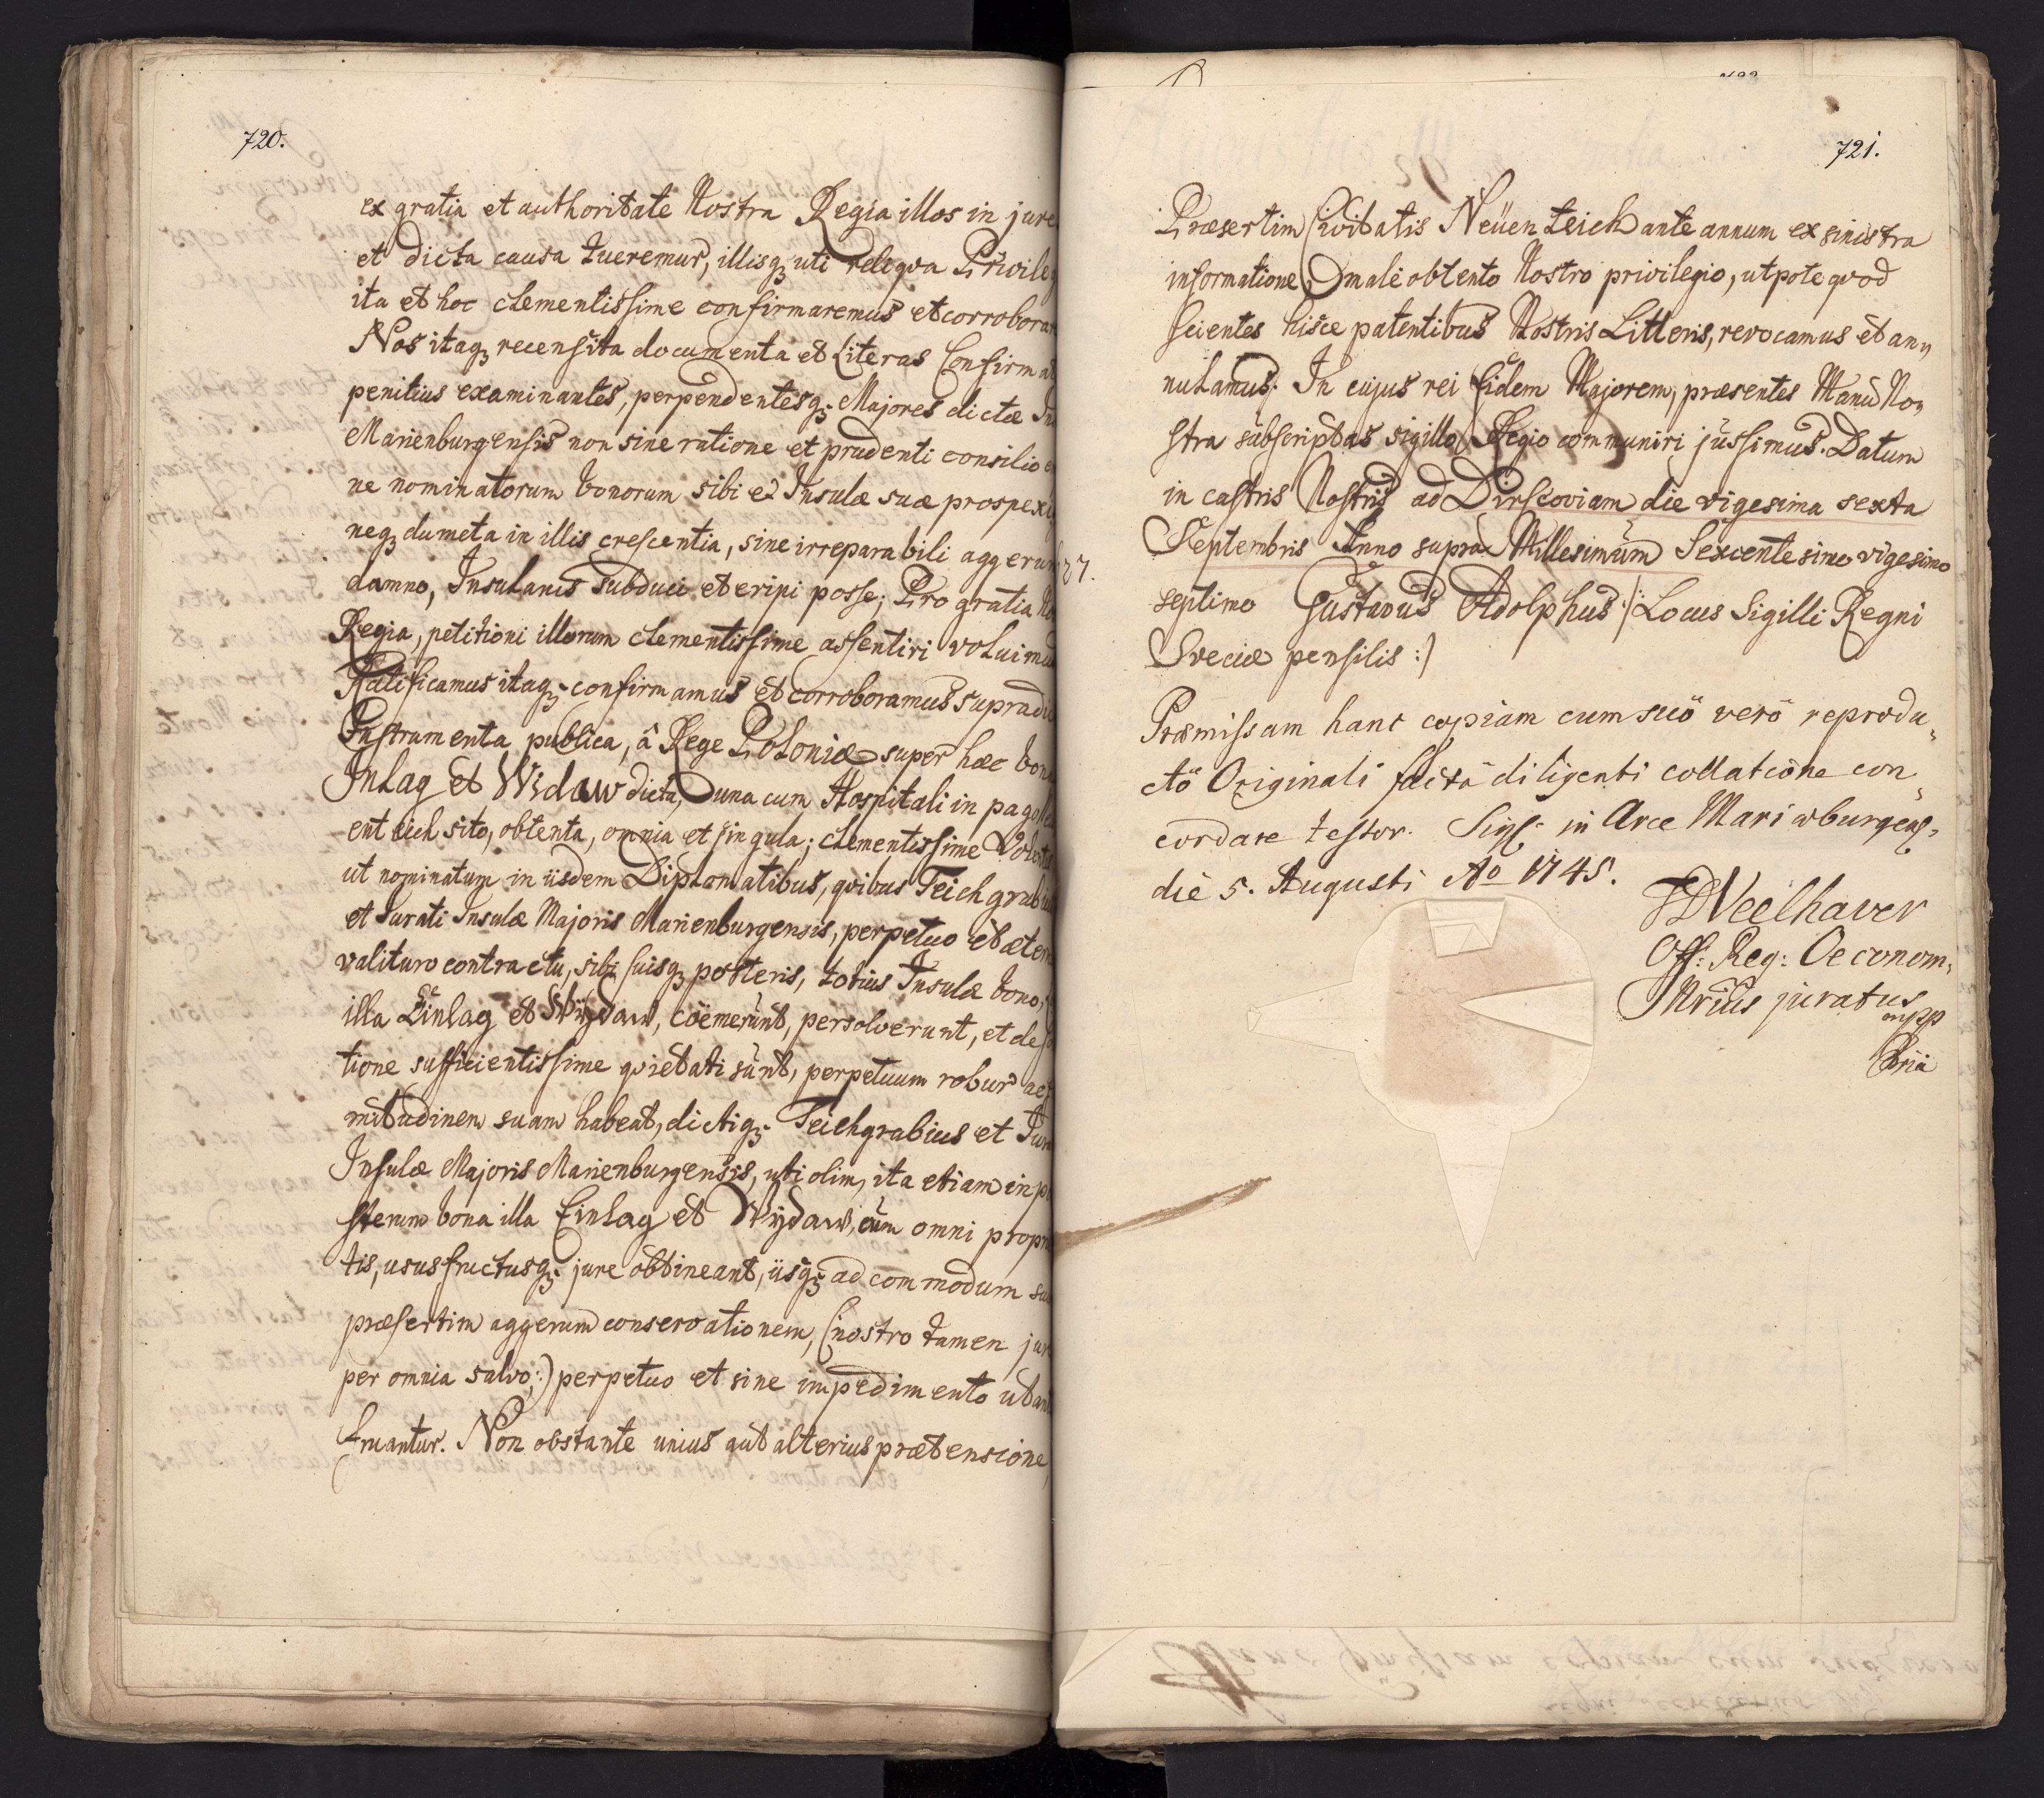 720.
ex gratia et authoritate Nostra Regia illos in jure
et dicta causa tueremur, illisq; uti reliqva Privileg
ita et hoc clementissime confirmaremus et corrobora
Nos itaq; recensita documenta et Literas Confirmat
penitius examinantes, perpendentesq; Majores dictæ In
Marienburgensis non sine ratione et prudenti consilio
ne nominatorum bonorum sibi et Insulæ suæ prospexi
neq; dumeta in illis crescentia, sine irreparabili aggerum
damno, Insulanis subduci et eripi posse; Pro gratia No
Regia, petitioni illorum clementissime assentiri voluimus
Ratificamus itaq; confirmamus et corroboramus supradi
Instrumenta publica, â Rege Poloniæ super hæc bona
Inlag et Widaw dicta, una cum Hospitali in pago
ent eich sito, obtenta, omnia et singula; clementissime
ut nominatum in iisdem Diplomatibus, qvibus Teichgrabi
et Jurati Insulæ Majoris Marienburgensis, perpetuo et æter
valituro contractu, sibi suisq; posteris, totius Insulæ bono,
illa Einlag et Wÿdaw, coëmerunt, persolverunt, et de
tione sufficientissime qvietati sunt, perpetuum robur ac
mitudinem suam habeat, dictiq; Teichgrabius et Jura
Insulæ Majoris Marienburgensis, uti olim, ita etiam in p
sterum bona illa Einlag et Wÿdaw, cum omni propri
tis, ususfructusq; jure obtineant, iisq; ad commodum su
præsertim aggerum conservationem, (nostro tamen jure
per omnia salvo;) perpetuo et sine impedimento utant
fruantur. Non obstante unius aut alterius prætensione,
721.
Præsertim Civitatis Neüenteich ante annum ex sinistra
informatione, male obtento Nostro privilegio, utpote qvod
scientes hisce patentibus Nostris Litteris, revocamus et an„
nulamus. In cujus rei fidem Majorem, præsentes Manu No„
stra subscriptas sigillo Regio communiri jussimus. Datum
in castris Nostris ad Dirscoviam die vigesima sexta
27.
Septembris Anno supra Millesimum Sexcentesimo vigesimo
septimo Gustavus Adolphus /: Locus Sigilli Regni
Sveciæ pensilis :/
Præmissam hanc copiam cum suô verô reprodu„
ctô Originali factâ diligenti collatione con„
cordare testor. Sigs. in Arce Mariæburgens.
die 5. Augusti Aº 1745.
Off: Reg: Oeconom,
Nrius juratus
mpp